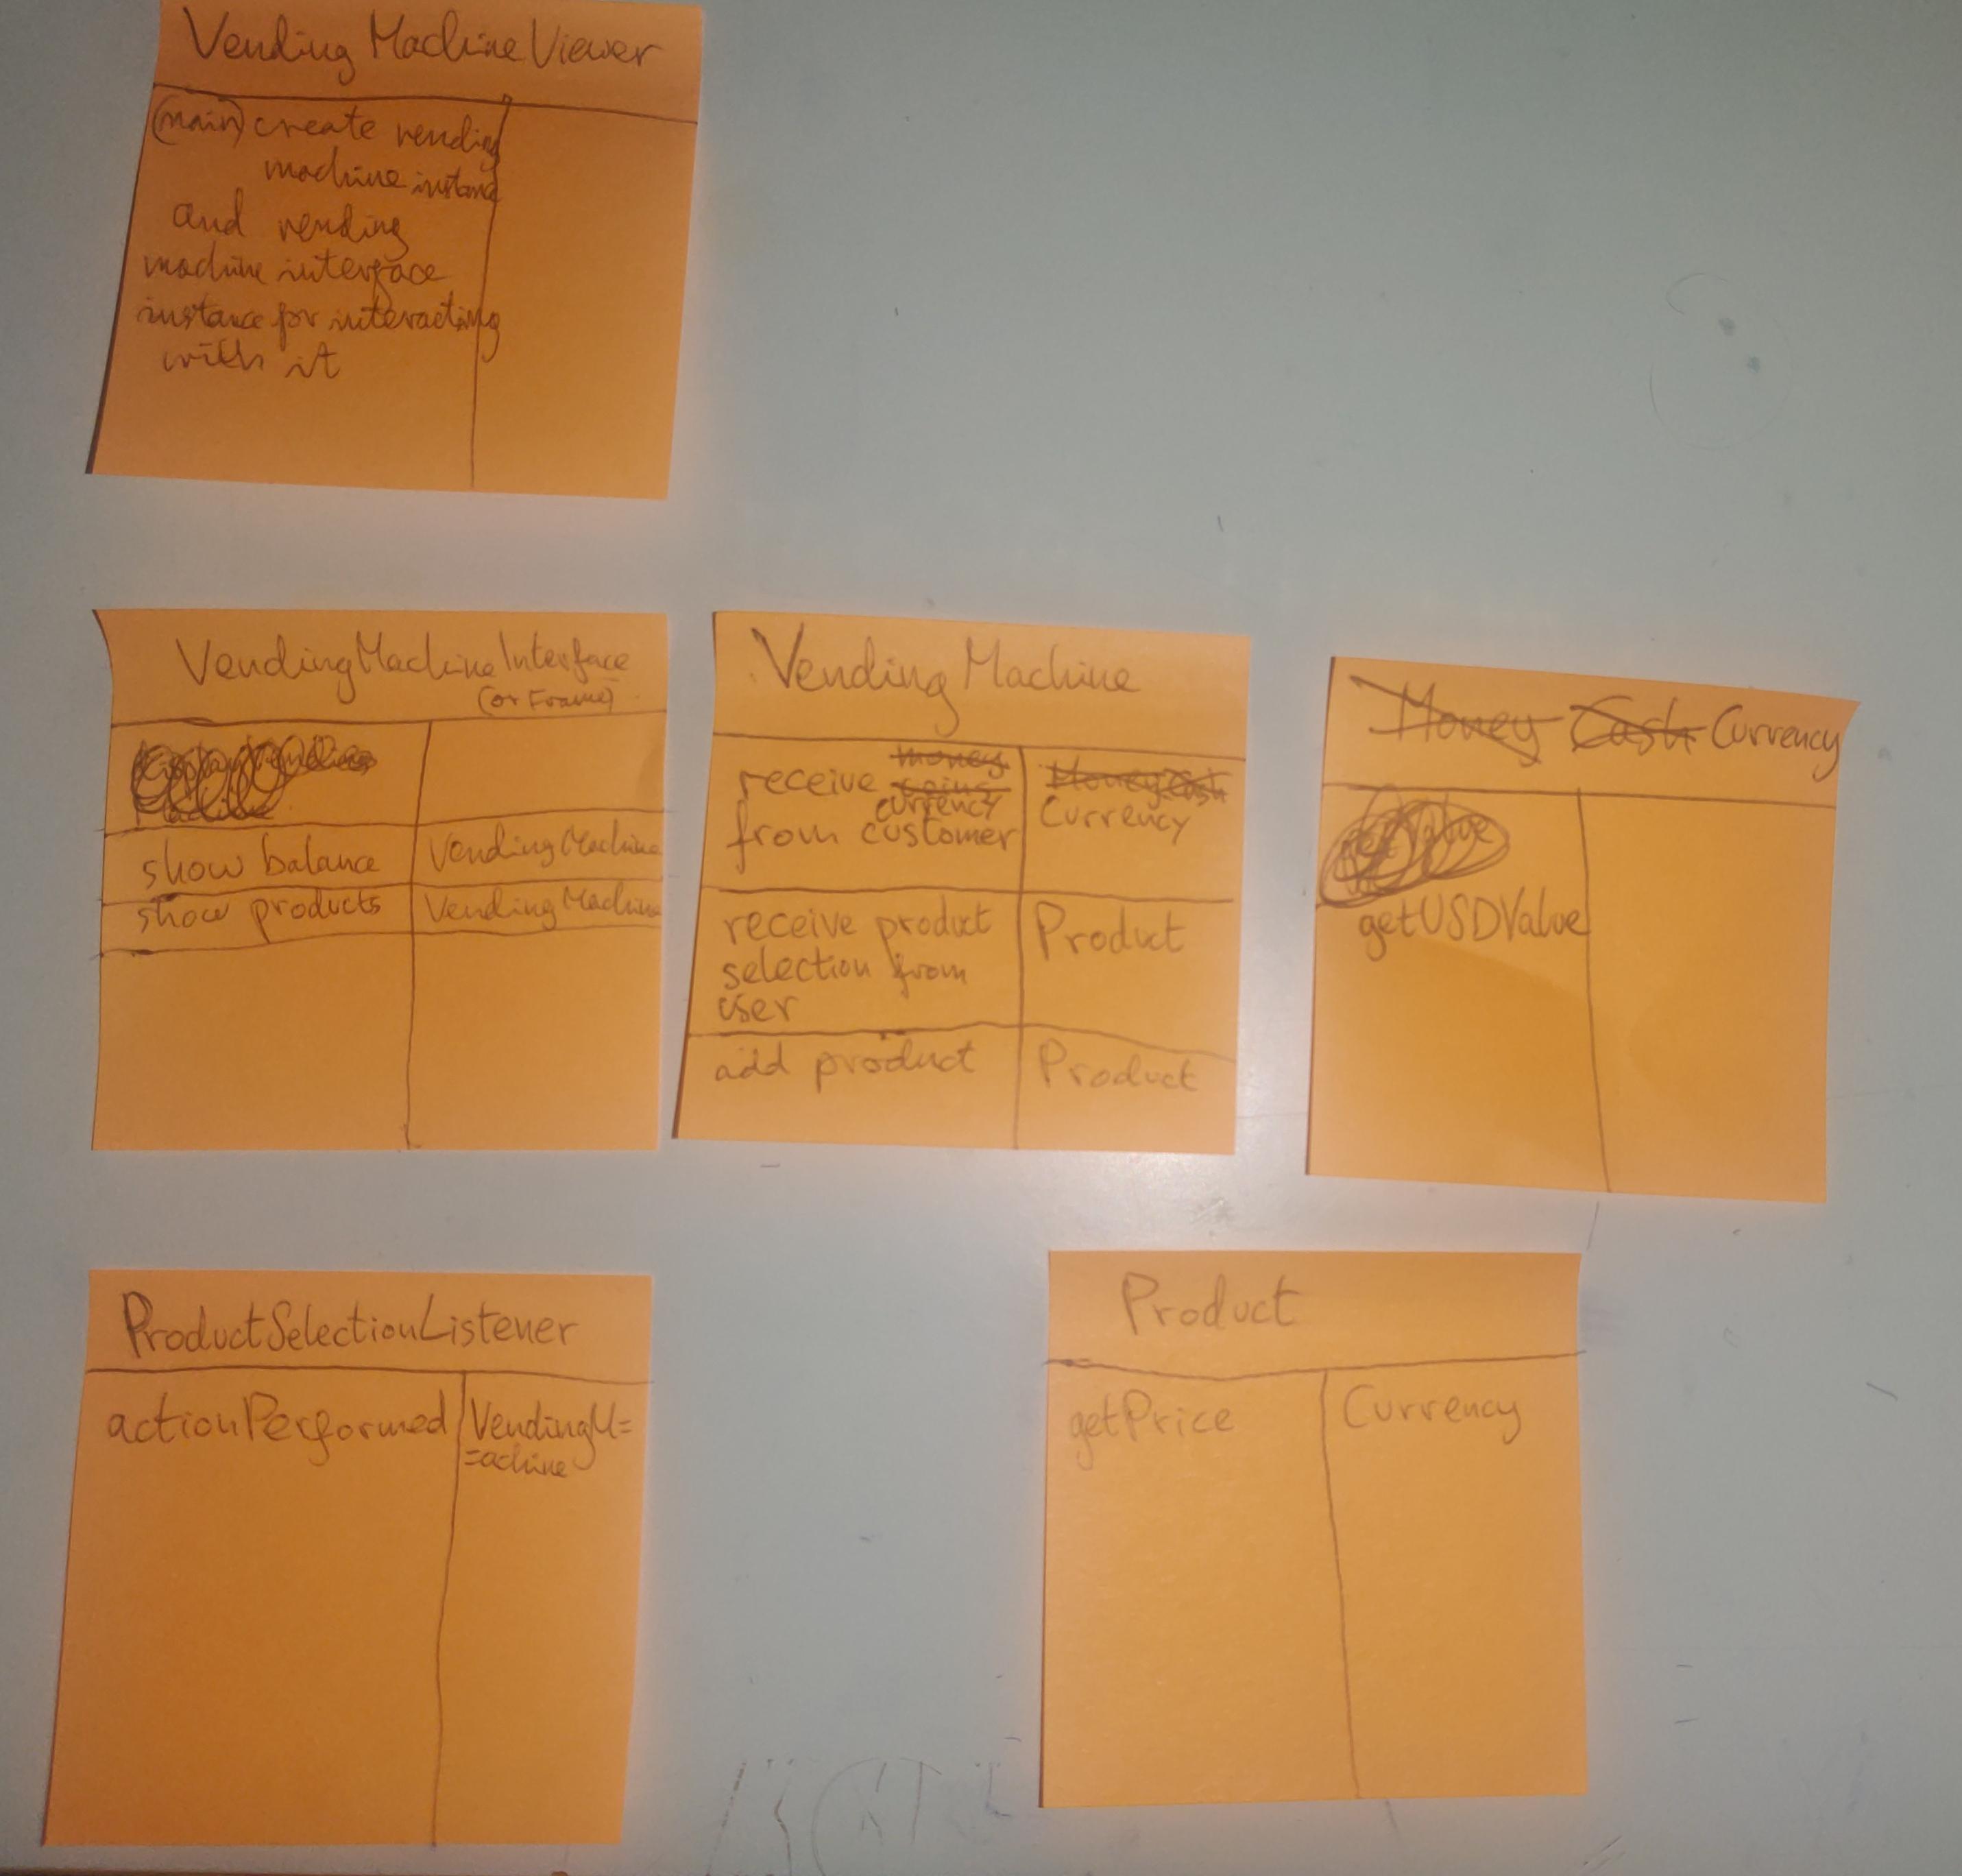 Vending Machine Viewer
(main) create vending
machine instance
and vending
machine interface
instance for interacting
with it
VendingMachineInterface
(or Frame)
show balance
VendingMachine
show products
VendingMachine
Vending Machine
money
receive coins
currency
from customer
Money Cash
Currency
receive product
selection from
user
Product
add product
Product
Money Cash Currency
getUSDValue
ProductSelectionListener
actionPerformed
VendingM=
=achine
Product
getPrice
Currency